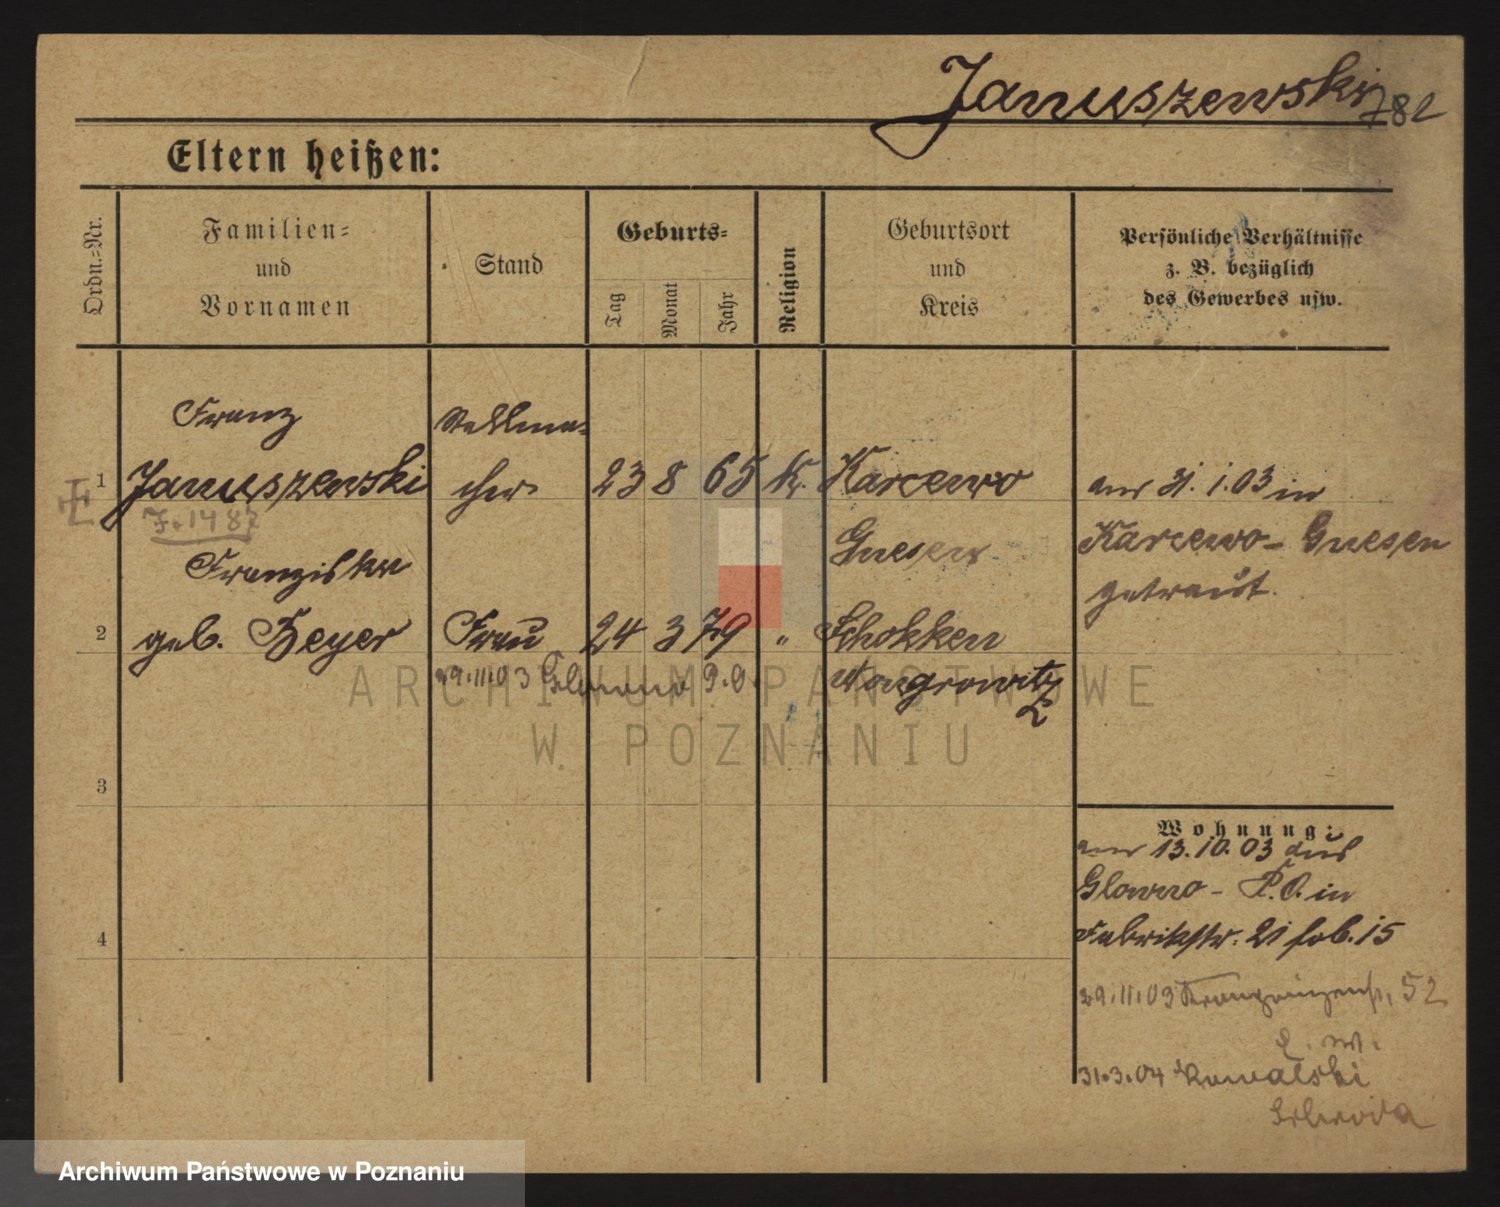 Januszewski
782
Eltern heißen:
Ordn.-Nr.
Familien-
und
Vornamen
Stand
Geburts-
Tag
Monat
Jahr
Religion
Geburtsort
und
Kreis
Persönliche Verhältnisse
z. B. bezüglich
des Gewerbes usw.
Franz
Stellma-
1 Januszewski cher 23 8 65 K. Karcewo
am 31. 1. 03 in
Karcewo - Gnesen
getraut.
J. 1487
Gnesen
Franziska
2 geb. Beyer Frau 24 3 79 " Schokken
29.11.03 Glowno P.O.
Wongrowitz
3
4
Wohnung:
am 13.10.03 aus
Glowno - P.O. in
Fabrikstr. 21 15
29.11.03 Kronprinzenstr. 52
31.3.04 Kowalski
ARCHIWUM PAŃSTWOWE
W POZNANIU
Archiwum Państwowe w Poznaniu